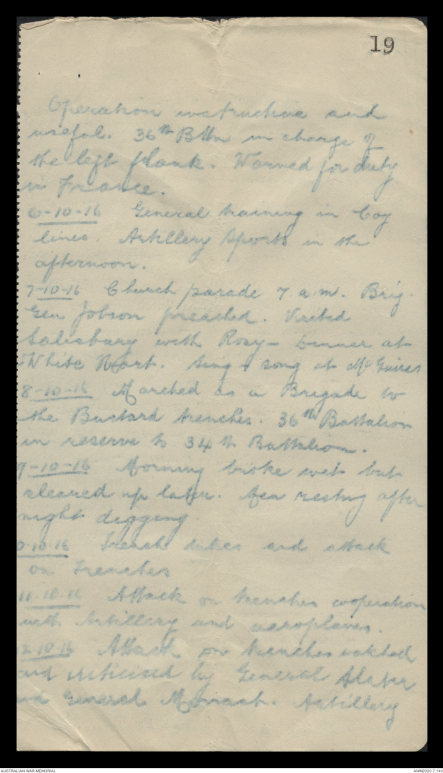 19
Operation instructive and
useful. 36th Bttn in charge of
the left flank. Warned for duty
in France.
6-10-16 General training in Coy
lines. Artillery Sports in the
afternoon.
7-10-16 Church parade 7 a.m. Brig.
Gen Jobson preached. Visited
Salisbury with Rosy - Dinner at
White Hart. Sing song at
8-10-16 Marched as a Brigade to
the Bustard trenches. 36th Battalion
in reserve to 34th Battalion.
9-10-16 Morning broke wet but
cleared up later. Men resting after
night digging
0-10-16 Trench duties and attack
on trenches
11-10-16 Attack on trenches cooperation
with Artillery and aeroplanes.
2-10-16 Attack on trenches watched
and criticised by General
and General Monash. Artillery
AUSTRALIAN WAR MEMORIAL